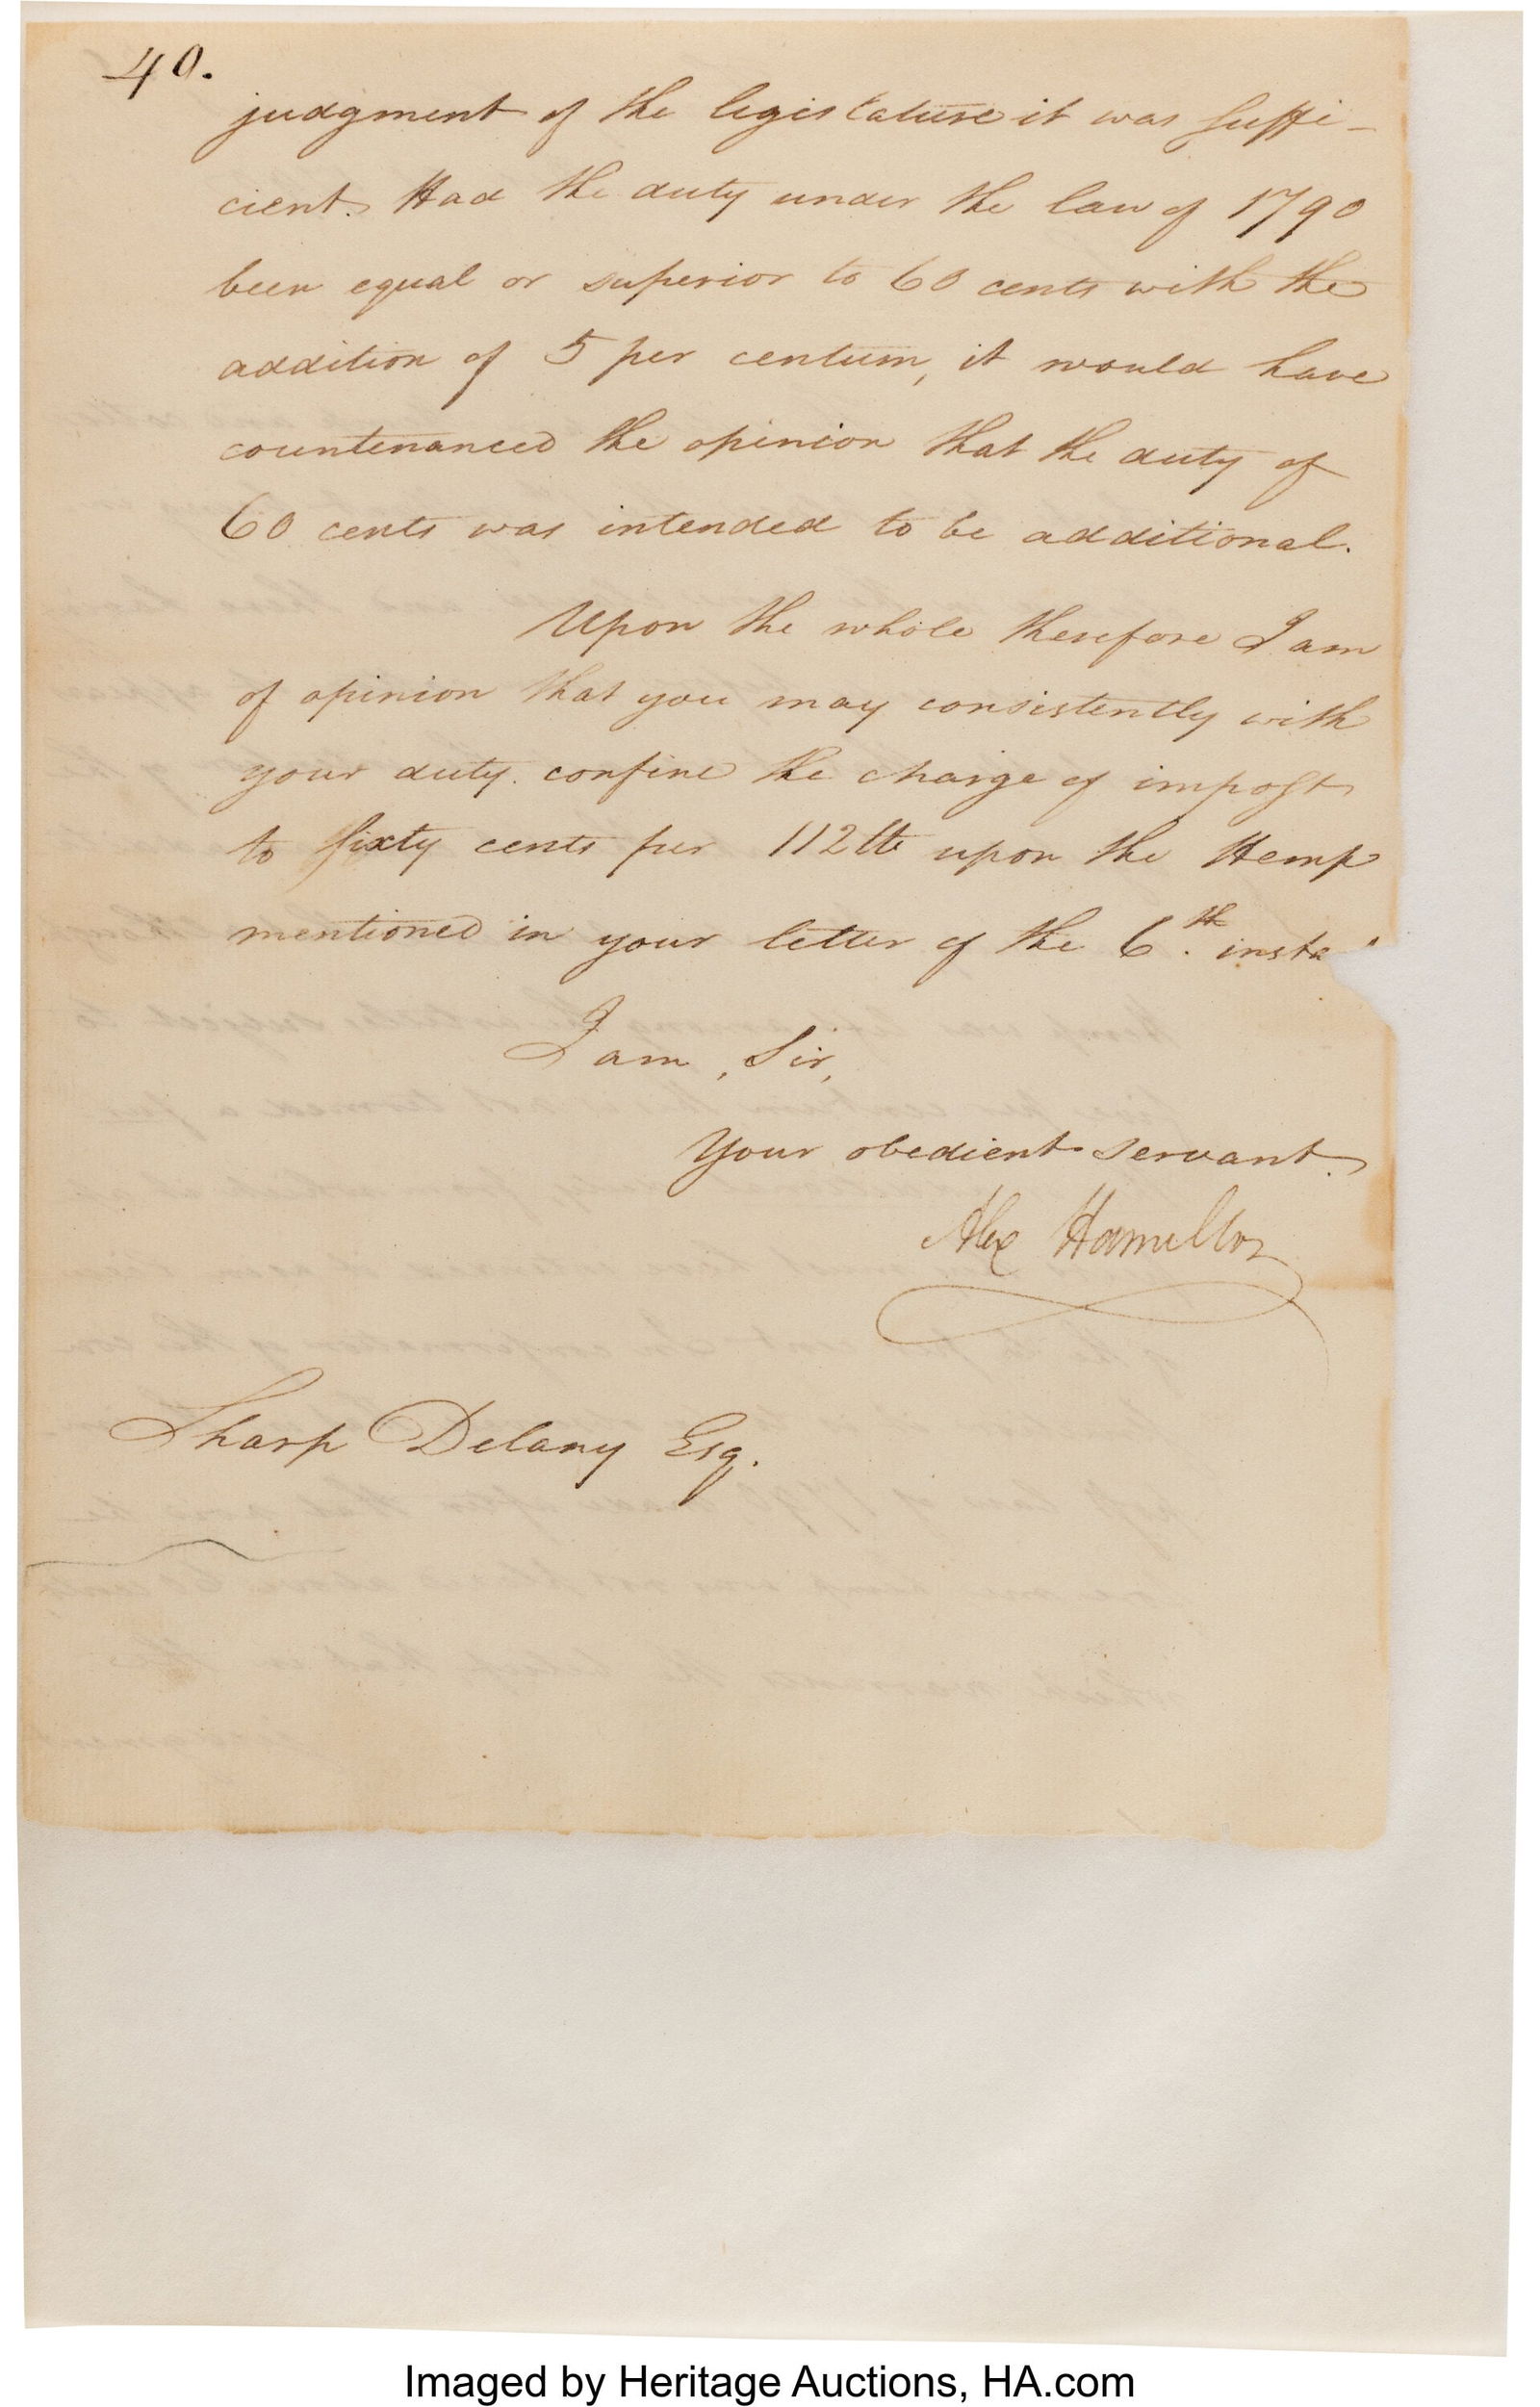 40.
judgment of the legislature it was suffi-
cient. Had the duty under the law of 1790
been equal or superior to 60 cents with the
addition of 5 per centum, it would have
countenanced the opinion that the duty of
60 cents was intended to be additional.
Upon the whole therefore I am
of opinion that you may consistently with
your duty confine the charge of impost
to sixty cents per 112 lb upon the Hemp
mentioned in your letter of the 6.th insta
I am, Sir,
Your obedient servant.
Alex Hamilton
Sharp Delany Esq.
Imaged by Heritage Auctions, HA.com